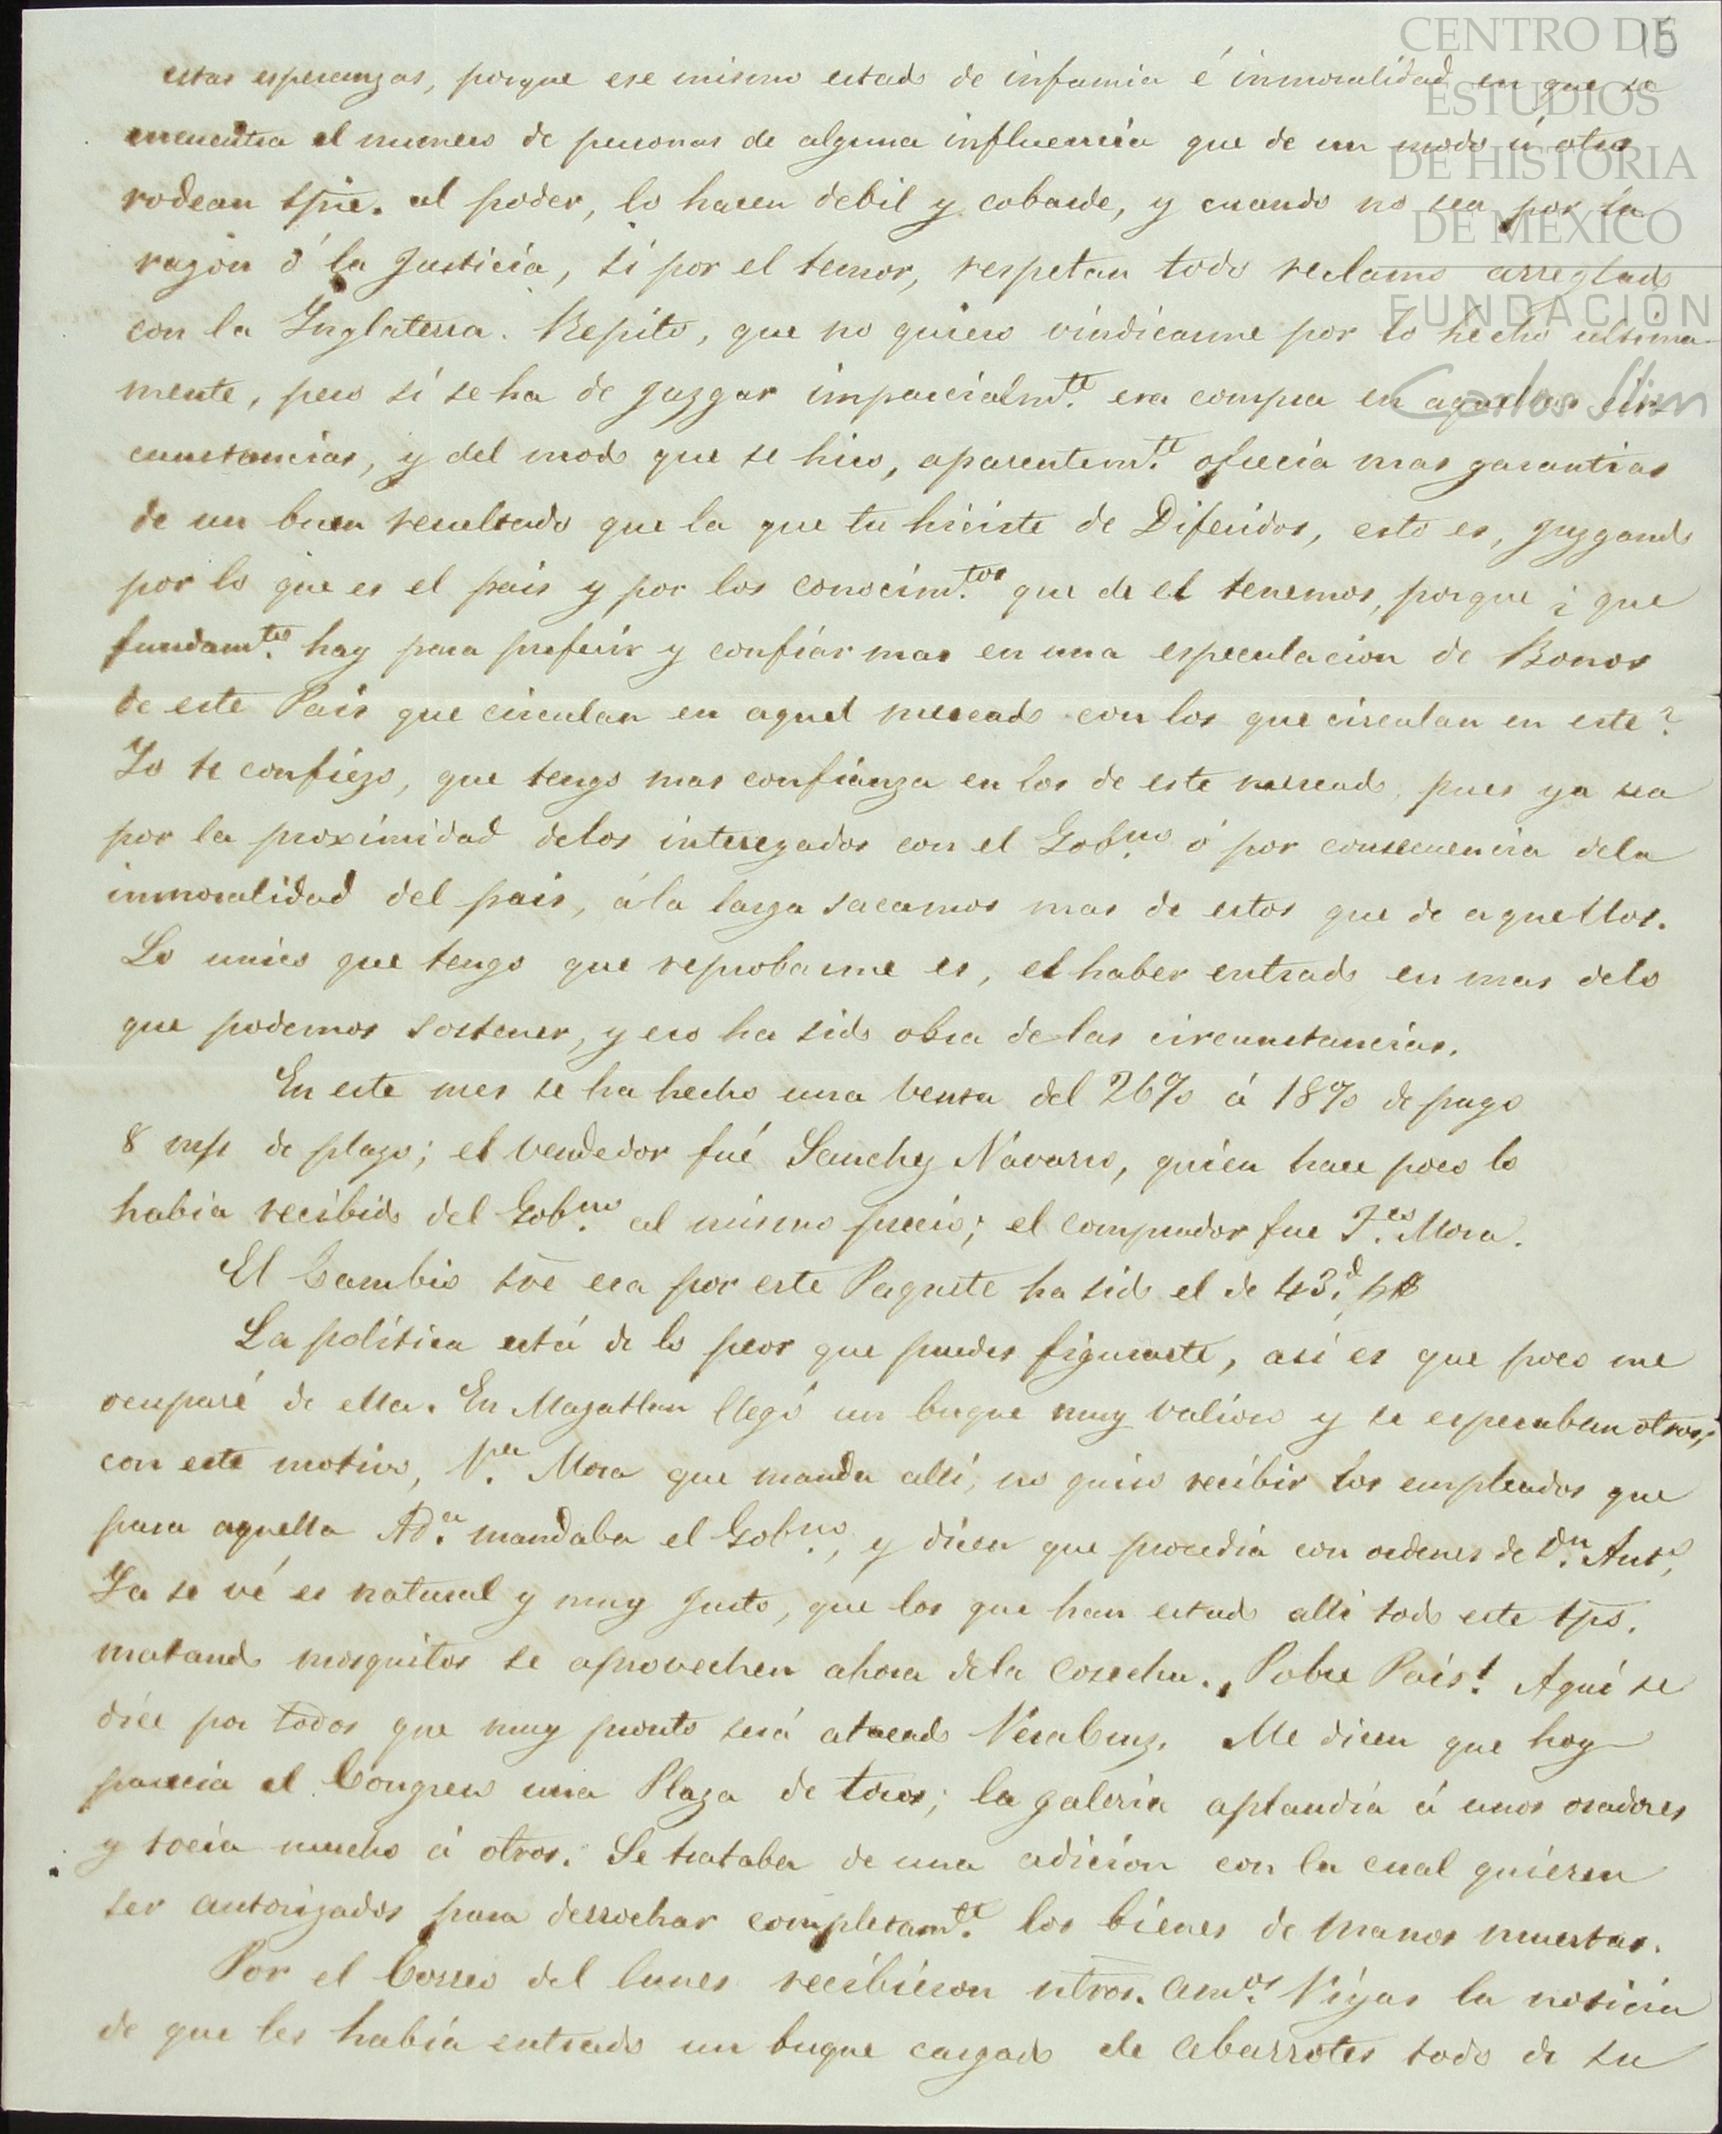 15
CENTRO DE
ESTUDIOS
DE HISTORIA
DE MEXICO
FUNDACIÓN
Carlos Slim
estas esperanzas, porque ese mismo estado de infamia é inmoralidad en que se
encuentra el numero de personas de alguna influencia que de un modo ú otro
rodean spre. al poder, lo hacen debil y cobarde, y cuando no sea por la
razon ó la Justicia, si por el temor, respetan todo reclamo arreglado
con la Inglaterra. Repito, que no quiero vindicarme por lo hecho ultima-
mente, pero si se ha de juzgar imparcialmte. esa compra en aquellas cir
cunstancias, y del modo que se hizo, aparentemte. ofrecia mas garantias
de un buen resultado que la que tu hiciste de Diferidos, esto es, juzgando
por lo que es el pais y por los conocimtos. que de el tenemos, porque ¿ que
fundamtos. hay para preferir y confiar mas en una especulacion de Bonos
de este Pais que circulan en aquel mercado con los que circulan en este?
Yo te confiezo, que tengo mas confianza en los de este mercado, pues ya sea
por la proximidad delos interezados con el Gobno. ó por consecuencia dela
inmoralidad del pais, á la larga sacamos mas de estos que de aquellos.
Lo unico que tengo que reprobarme es, el haber entrado en mas delo
que podemos sostener, y eso ha sido obra de las circunstancias.
En este mes se ha hecho una venta del 26% á 18% de pago
8 m/s de plazo; el vendedor fué Sanchez Navarro, quien hace poco lo
habia recibido del Gobno. al mismo precio; el comprador fue Fco. Mora.
El Cambio sre esa por este Paquete ha sido el de 43.d p$
La politica está de lo peor que puedes figurarte, asi es que poco me
ocuparé de ella. En Mazatlan llegó un buque muy valioso y se esperaban otros;
con este motivo, Mora que manda alli, no quiso recibir los empleados que
para aquella Ada. mandaba el Gobno., y dicen que procedia con ordenes de Dn. Anto,
Ya se vé es natural y muy justo, que los que han estado alli todo este tpo.
matando mosquitos se aprovechen ahora dela cosecha. ¡Pobre Pais! Aqui se
dice por todos que muy pronto será atacado Veracruz. Me dicen que hoy
parecia el Congreso una Plaza de toros; la galeria aplaudia á unos oradores
y tocia mucho á otros. Se trataba de una adicion con la cual quieren
ser autorizados para derrochar completamte. los bienes de manos muertas.
Por el Correo del lunes recibieron ntros. amos. Viyas la noticia
de que les habia entrado un buque cargado de abarrotes todo de su